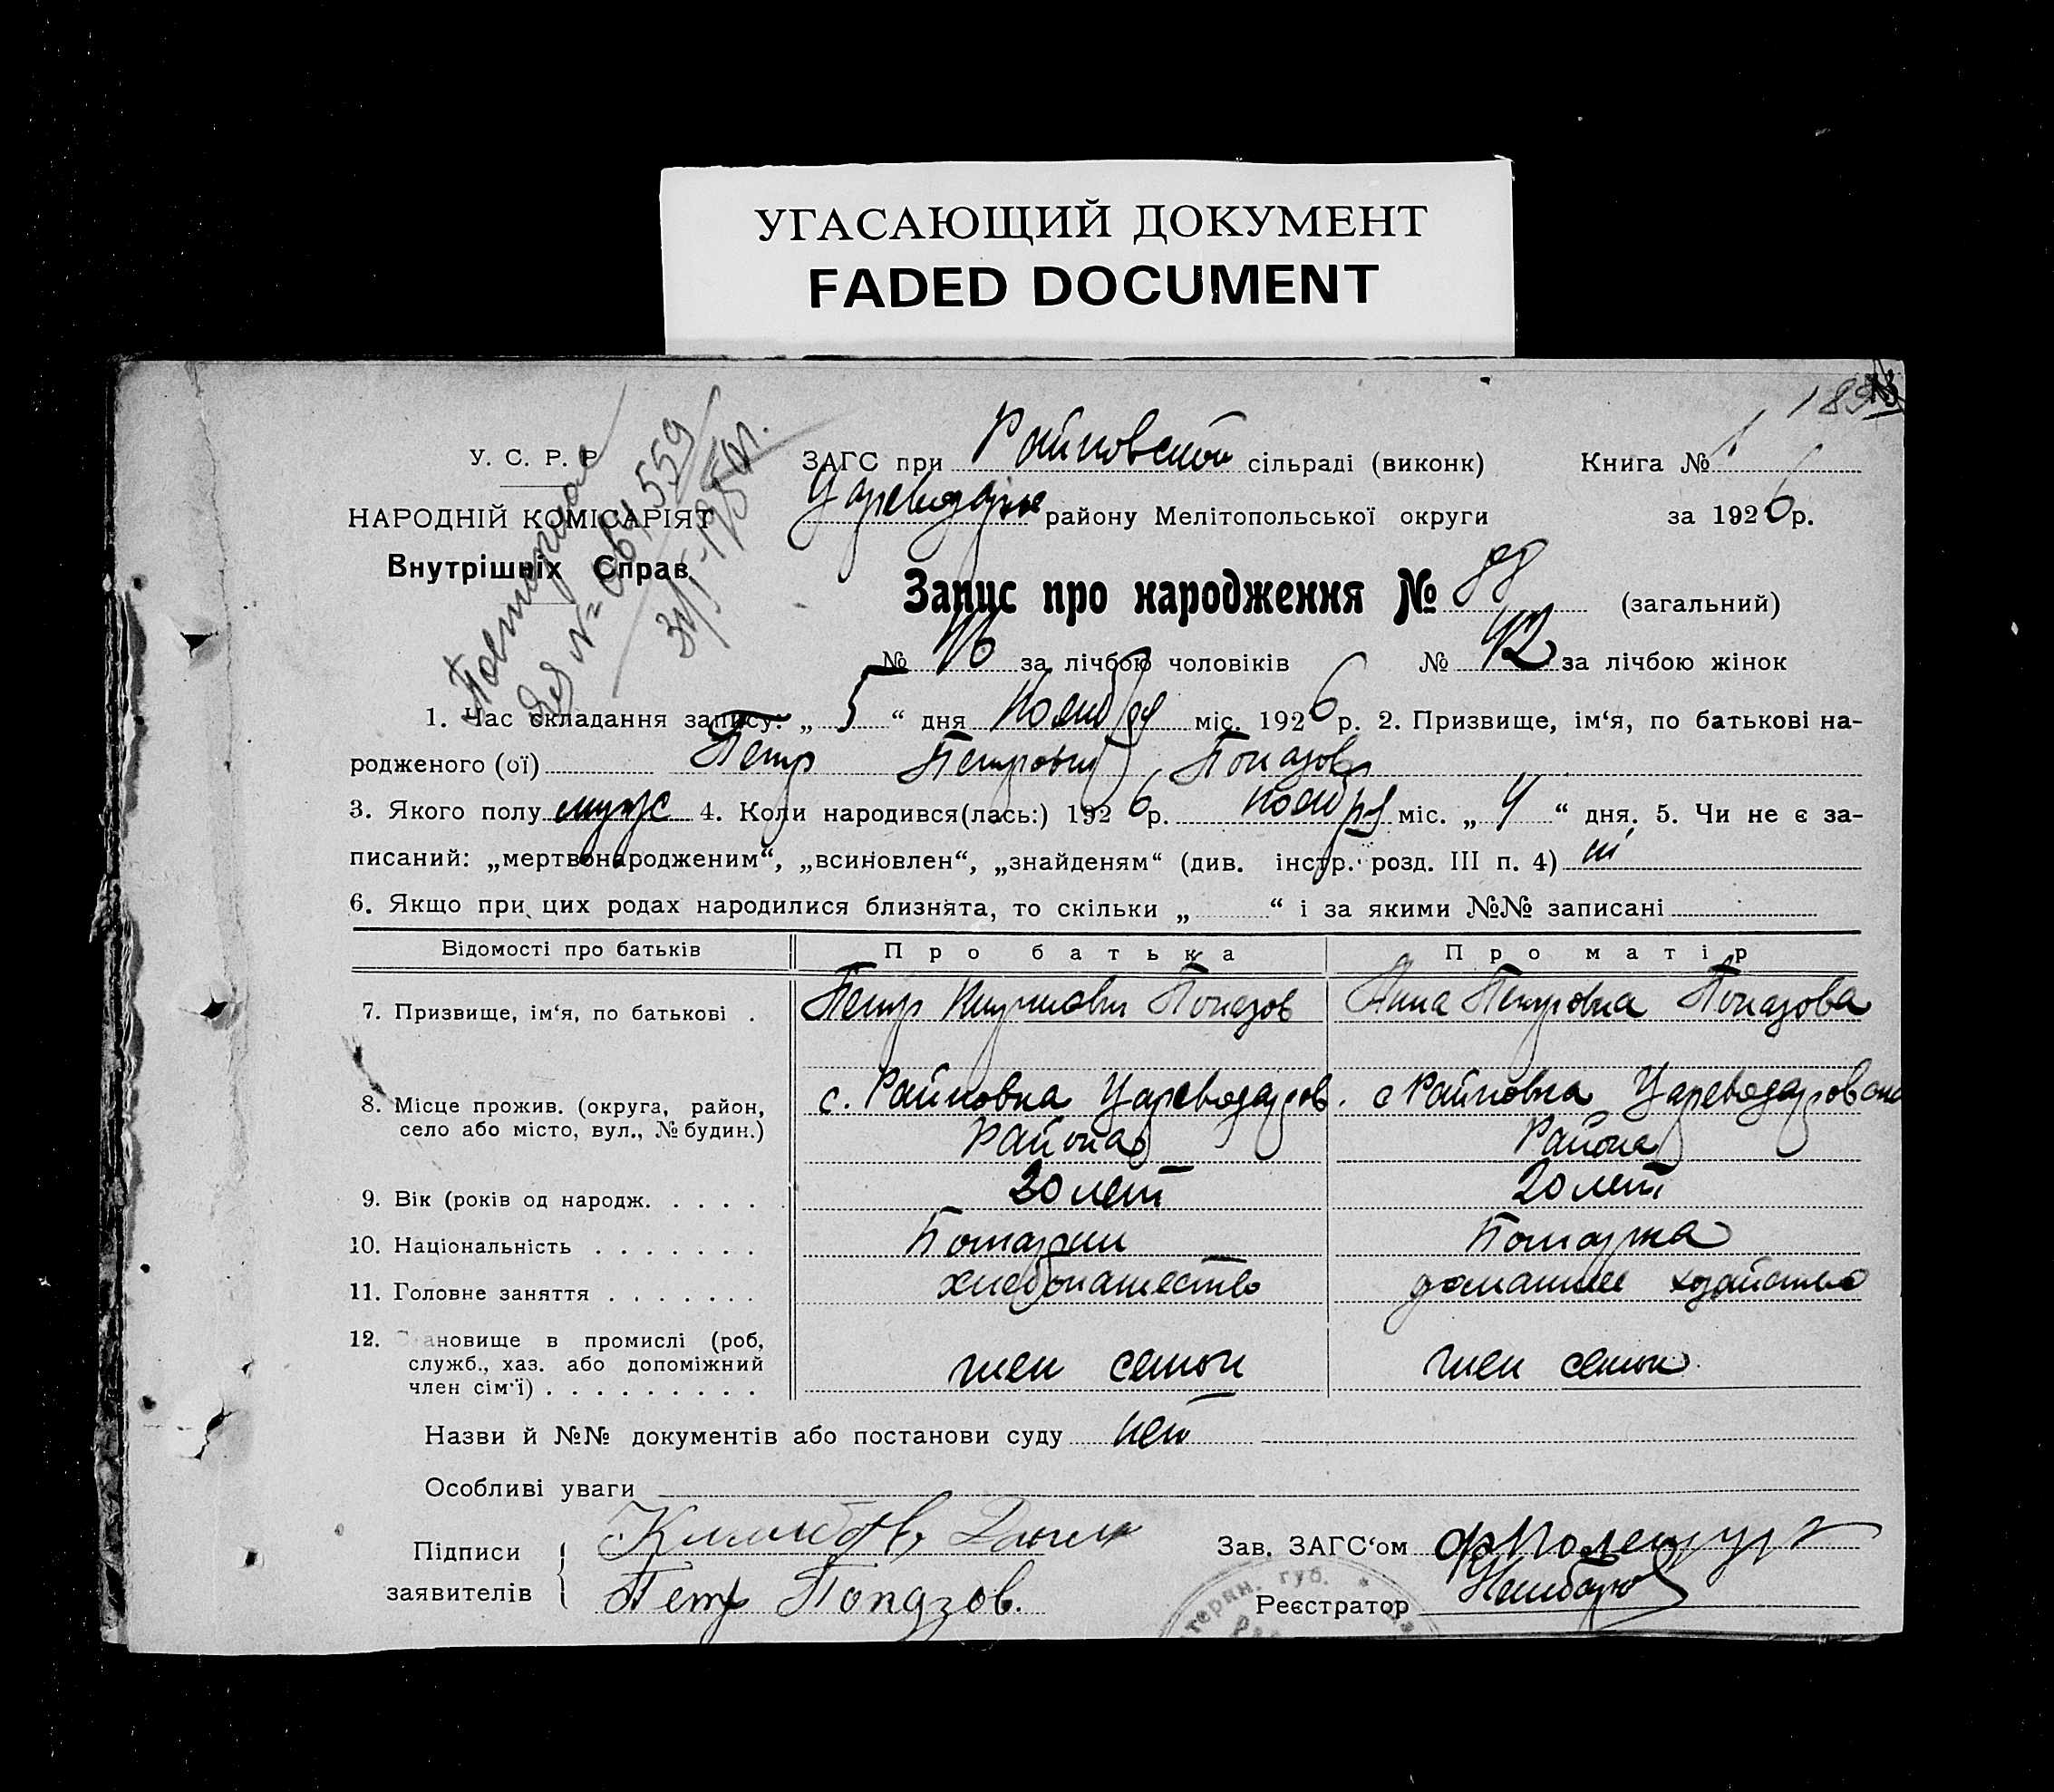 УГАСАЮЩИЙ ДОКУМЕНТ
FADED DOCUMENT
У. С. Р. Р.
НАРОДНІЙ КОМІСАРІЯТ
Внутрішніх Справ
ЗАГС при Райновской сільраді (виконк) Книга № 1
району Мелітопольської округи за 1926 р.
Запис про народження № 88 (загальний)
№ 46 за лічбою чоловіків № 42 за лічбою жінок
1. Час складання запису: „ 5 “ дня Ноября міс. 1926 р. 2. Призвище, ім‘я, по батькові на-
родженого (ої) Петр Петрович Попазов
3. Якого полу мужс 4. Коли народився(лась:) 1926 р. ноября міс. „ 4 “ дня. 5. Чи не є за-
писаний: „мертвонародженим“, „всиновлен“, „знайденям“ (див. інстр. розд. III п. 4) ні
6. Якщо при цих родах народилися близнята, то скільки „ “ і за якими №№ записані
Відомості про батьків Про батька Про матір
7. Призвище, ім‘я, по батькові . Петр Попазов Анна Петровна Попазова
8. Місце прожив. (округа, район, село або місто, вул., № будин.) с. Райновка Цареводаров. с Райновка Цареводаровско
Района Района
9. Вік (років од народж. . . . . 20 лет 20 лет
10. Національність . . . . . . . Болгарин Болгарка
11. Головне заняття . . . . . . . хлебопашество домашнее хозяйство
12. Становище в промислі (роб, служб., хаз. або допоміжний член сім‘ї) . . . . . . . . . член семьи член семьи
Назви й №№ документів або постанови суду нет
Особливі уваги
Підписи заявителів
Зав. ЗАГС‘ом
Петр Попазов. Реєстратор